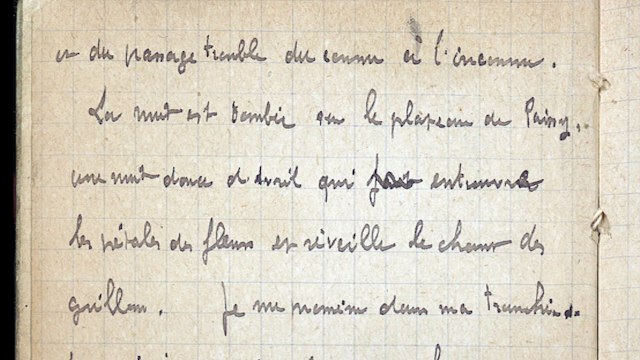 et du passage trouble du connu à l'inconnu.
La nuit est tombée sur le plateau de Paissy,
une nuit douce d'avril qui fait entrouvre
les pétales des fleurs et réveille le chant des
grillons. Je me promène dans ma tranchée